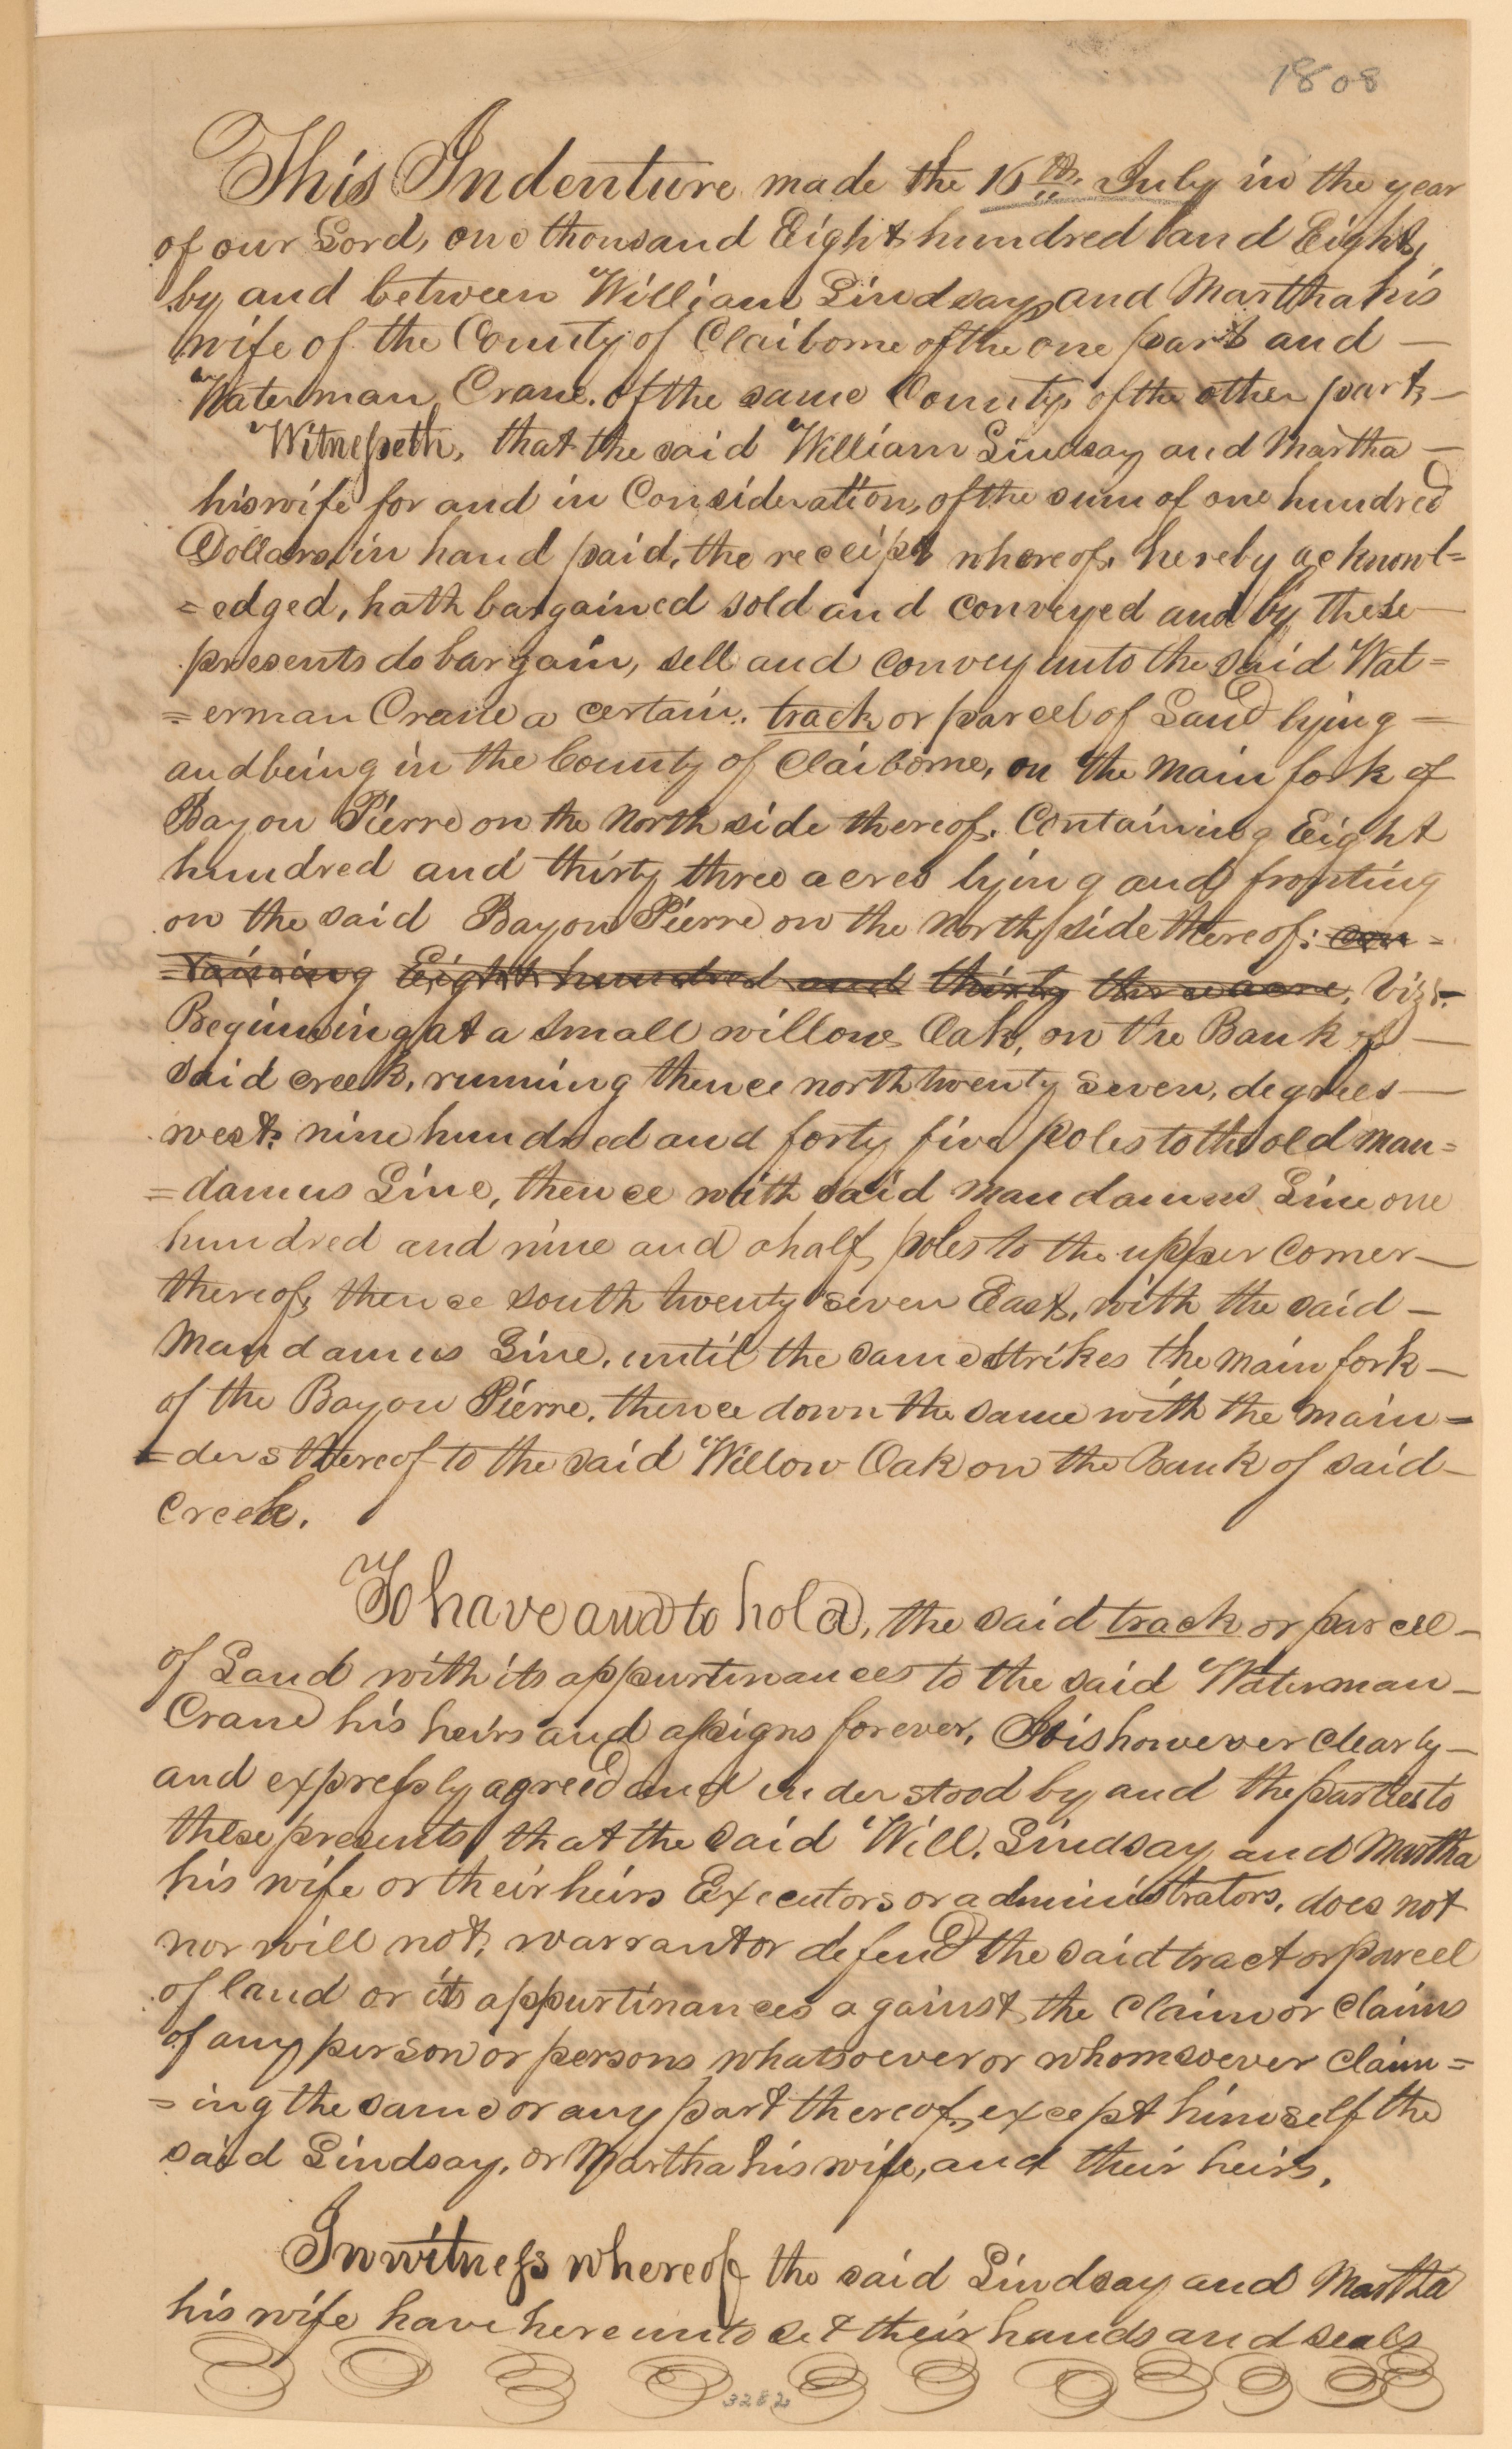 1808
This Indenture made the 16th. July in the year
of our Lord, one thousand Eight hundred and Eight,
by and between William Lindsay, and Martha his
wife of the County of Claiborne of the one part and —
Waterman Crane. of the same County, of the other part, —
Witnesseth, that the said William Lindsay and Martha —
his wife for and in Consideration, of the sum of one hundred
Dollars, in hand paid, the receipt whereof, hereby acknowl=
=edged, hath bargained sold and conveyed and by these —
presents do bargain, sell and convey unto the said Wat=
=erman Crane a certain. track or parcel of Land lying =
and being in the County of Claiborne, on the main fork of
Bayou Pierre on the North side thereof. Containing Eight
hundred and thirty three acres lying and fronting
on the said Bayou Pierre on the North side thereof: con=
=taining Eight hundred and thirty three acre, Vizt.
Beginning at a small willow Oak, on the Bank of —
said creek, running thence north twenty seven, degrees —
west, nine hundred and forty five poles to the old man=
=damus Line, thence with said mandamus Line one
hundred and nine and a half, poles to the upper corner —
thereof, thence south twenty seven East, with the said —
Mandamus Line, until the same strikes the main fork —
of the Bayou Pierre, thence down the same with the main=
=ders thereof to the said Willow Oak on the Bank of said —
Creek.
To have and to hold, the said track or parcel —
of Land with its appurtinances to the said Waterman —
Crane his heirs and assigns forever, It is however clearly —
and expressly agreed and understood by and the parties to
these presents, that the said Will. Lindsay and Martha
his wife or their heirs Executors or administrators, does not
nor will not, warrant or defend the said tract or parcel
of land or its appurtinances against the Claim or Claims
of any person or persons whatsoever or whomsoever claim=
=ing the same or any part thereof, except himself the
said Lindsay, or Martha his wife, and their heirs.
In witness whereof the said Lindsay and Martha
his wife have hereunto set their hands and seals
3282